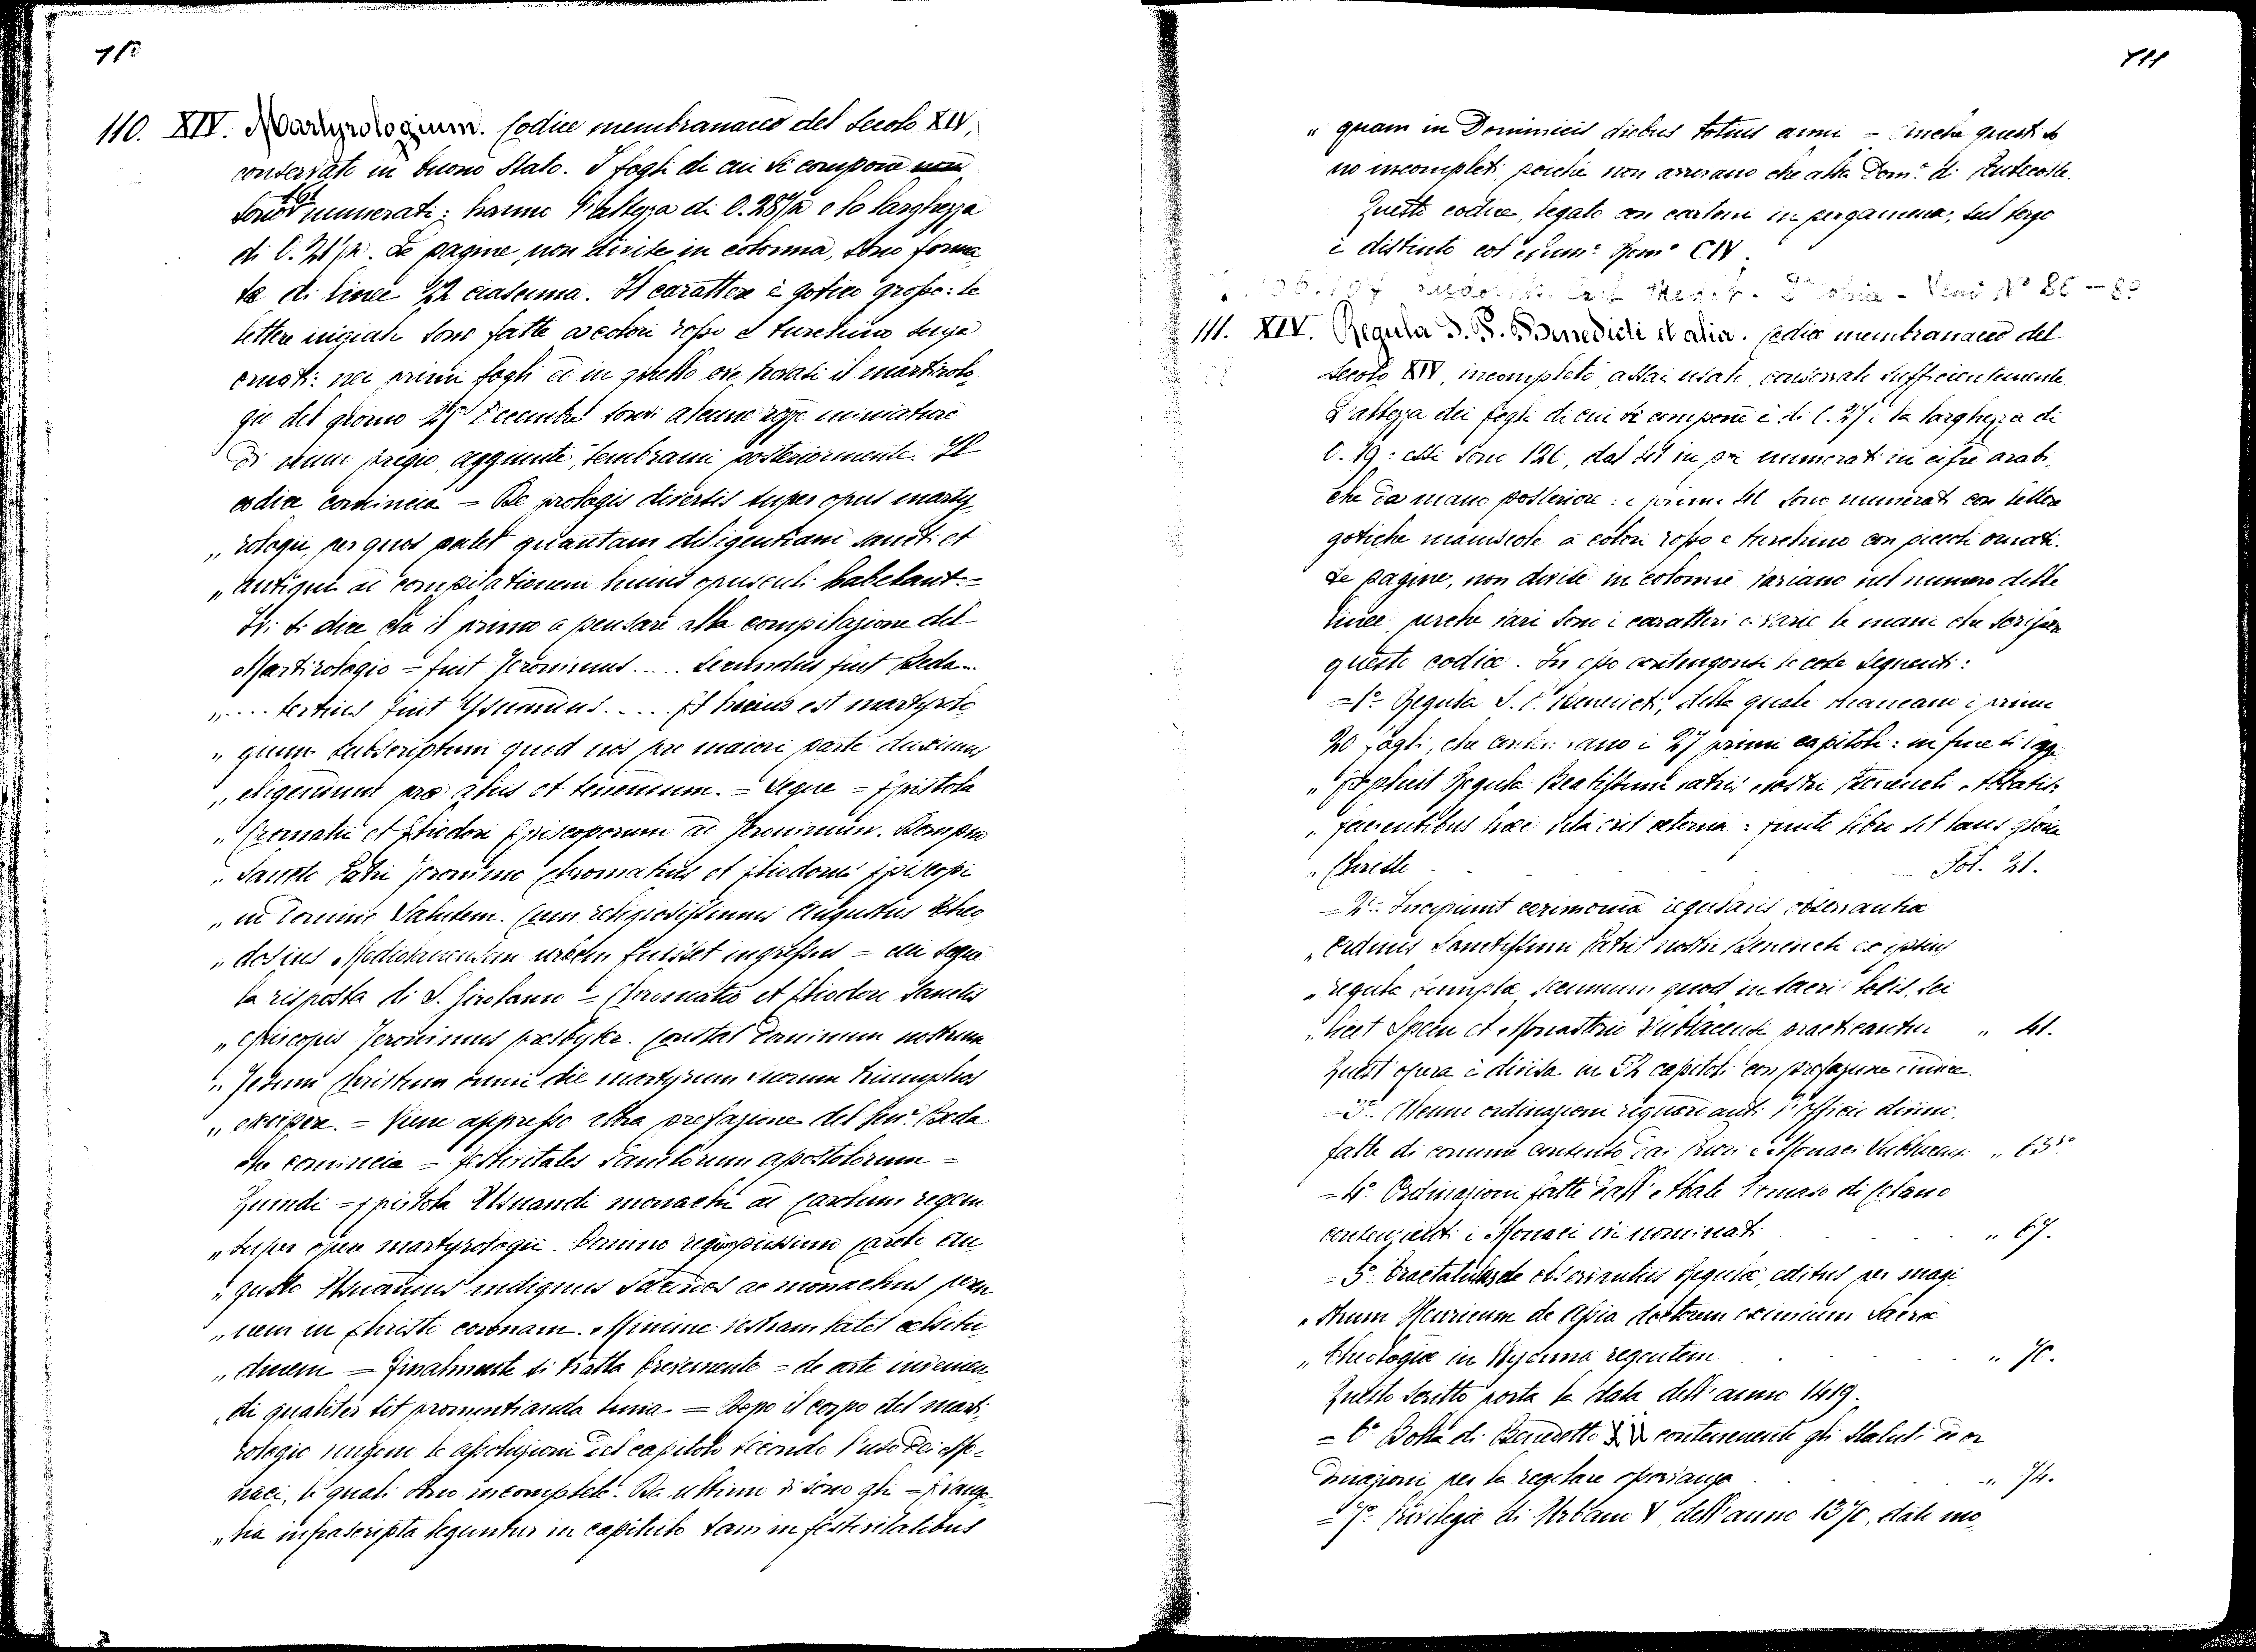 110
110. XIV. Martyrologium. Codice membranaceo del Secolo XIV,
conservato in buono Stato. I fogli di cui si compone non
sono 161 numerati: hanno l'altezza di C. 28 1/2 e la larghezza
di C. 21 1/2. Le pagine, non divise in colonna, sono forma
te di linee 22 ciascuna. Il carattere è gotico grosso: le
lettere iniziali sono fatte a colori rosso e turchino senza
ornati: nei primi fogli ed in quello ove trovasi il martirolo
gio del giorno 25 Decembre sonvi alcune rozze miniature
di niun pregio, aggiunte, sembrami posteriormente. Il
codice comincia = De prologis diversis super opus marty,
„ rologii, per quos patet quantam diligentiam sancti et
„ antiqui ad compilationem huius opusculi habebant. =
Ivi si dice che il primo a pensare alla compilazione del
Martirologio = fuit Jeronimus .... Secundus fuit Beda...
„ .... tertius fuit Usuardus ..... Et huius est martyrolo
„ gium subscriptum quod nos pro maiori parte duximus
„ eligendum præ aliis et tenendum. = Segue = Epistola
„ Cromatii et Eliodori Episcoporum ad Jeronimum. Dompno
„ Sancto Patri Jeronimo Chromatius et Eliodorus Episcopi
„ in Domino Salutem. Cum religiosissimus Augustus Theo
„ dosius Mediolanensem urbem fuisset ingressus = cui segue
la risposta di S. Girolamo = Chromatio et Eliodoro Sanctis
„ Episcopis Jeronimus presbyter. Constat Dominum nostrum
„ Jesum Christum omni die martyrum suorum triumphos
„ excipere. = Viene appresso altra prefazione del Ven.e Beda
che comincia = festivitates Sanctorum apostolorum =
Quindi = Epistola Usuardi monachi ad Carolum regem
„ super opere martyrologii. Domino regum piissimo Carolo Au
„ gusto Usuardus indignus sacerdos ac monachus peren
„ nem in Christo coronam. Minime vestram latet celsitu
„ dinem = finalmente si tratta brevemente = de arte invenien
„ di qualiter sit pronuntianda luna. = Dopo il corpo del marti,
rologio vengono le assoluzioni del capitolo secondo l'uso dei Mo=
naci, le quali sono incomplete. Da ultimo vi sono gli = Evange
„ lia infrascripta leguntur in capitulo tam in festivitatibus
111
„ quam in Dominicis diebus totius anni = Anche questi so
no incompleti, poiché non arrivano che alla Dom.a di Pentecoste.
Questo codice, legato con cartoni in pergamena, sul tergo
è distinto col num.o Rom.o CIV.
Nº 86 - 89
111. XIV. Regula S. P. Benedicti et alia. Codice membranaceo del
Secolo XIV, incompleto, assai usato, conservato sufficientemente.
L'altezza dei fogli di cui si compone è di C. 27 e la larghezza di
C. 19: essi sono 126, dal 41 in poi numerati in cifre arabi,
che da mano posteriore: i primi 41 sono numerati con lettere
gotiche maiuscole a colori rosso e turchino con piccoli ornati.
Le pagine, non divise in colonne variano nel numero delle
linee, perché vari sono i caratteri e varie le mani che scrissero
questo codice. In esso contengonsi le cose seguenti:
= 1.o Regula S. P. Benedicti, della quale mancano i primi
20 fogli, che contenevano i 27 primi capitoli: in fine si legge
„ Explicit Regula Beatissimi Patris nostri Benedicti Abbatis:
„ facientibus hæc vita erit æterna: finito libro sit laus gloria
„ Christo Fol. 21.
= 2.o Incipiunt cerimoniæ regularis observantiæ
„ Ordinis Sanctissimi Patris nostri Benedicti ex ipsius
„ regula sumptæ secundum quod in Sacris locis, sci
„ licet Specu et Monasterio Sublacensi practicantur „ 41.
Quest'opera è divisa in 52 capitoli con prefazione e indice.
= 3.o Alcune ordinazioni riguardanti l'officio divino,
fatte di comune consenso dai Priori e Monaci Sublacensi „ 65.to
= 4.o Ordinazioni fatte dall'Abate Tomaso di Celano
contenienti i Monaci ivi nominati „ 67.
= 5.o Tractatulus de observantiis Regulæ, editus per magi
„ strum Henricum de Assia doctorem eximium Sacræ
„ Theologiæ in Wyenna regentem „ 70.
Questo scritto porta la data dell'anno 1419.
= 6.o Bolla di Benedetto XII contenente gli Statuti ed or
dinazioni per la regolare osservanza „ 74.
= 7.o Privilegio di Urbano V dell'anno 1370, dato mo,